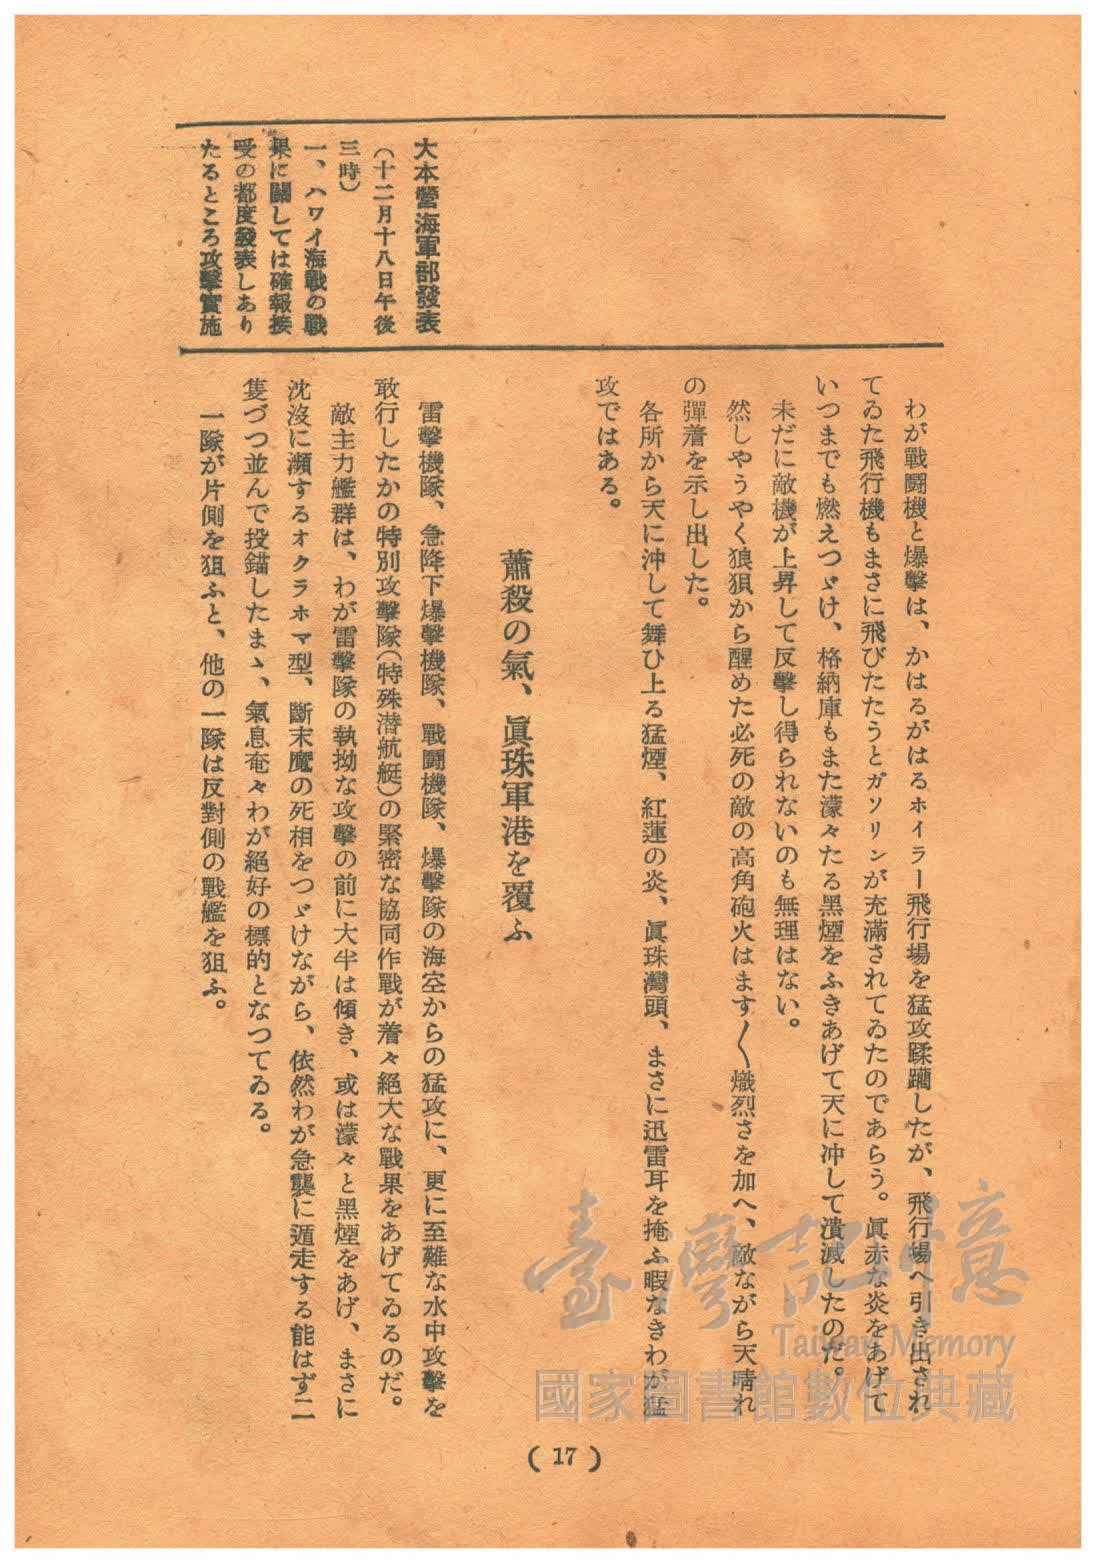 大本營海軍部發表
(十二月十八日午後
三時)
一、ハワイ海戰の戰
果に關しては確報接
受の都度發表しあり
たるところ攻擊實施
わが戰鬪機と爆擊は、かはるがはるホイラー飛行場を猛攻蹂躪したが、飛行場へ引き出され
てゐた飛行機もまさに飛びたたうとガソリンが充滿されてゐたのであらう。眞赤な炎をあげて
いつまでも燃えつゞけ、格納庫もまた濛々たる黑煙をふきあげて天に冲して潰滅したのだ。
未だに敵機が上昇して反擊し得られないのも無理はない。
然しやうやく狼狽から醒めた必死の敵の高角砲火はます〱熾烈さを加へ、敵ながら天晴れ
の彈着を示し出した。
各所から天に冲して舞ひ上る猛煙、紅蓮の炎、眞珠灣頭、まさに迅雷耳を掩ふ暇なきわが猛
攻ではある。
蕭殺の氣、眞珠軍港を覆ふ
雷擊機隊、急降下爆擊機隊、戰鬪機隊、爆擊隊の海空からの猛攻に、更に至難な水中攻擊を
敢行したかの特別攻擊隊(特殊潜航艇)の緊密な協同作戰が着々絕大な戰果をあげてゐるのだ。
敵主力艦群は、わが雷擊隊の執拗な攻擊の前に大半は傾き、或は濛々と黑煙をあげ、まさに
沈沒に瀕するオクラホマ型、斷末魔の死相をつゞけながら、依然わが急襲に遁走する能はず二
隻づつ並んで投錨したまゝ、氣息奄々わが絕好の標的となつてゐる。
一隊が片側を狙ふと、他の一隊は反對側の戰艦を狙ふ。
(17)
臺灣記憶
Taiwan Memory
國家圖書館數位典藏